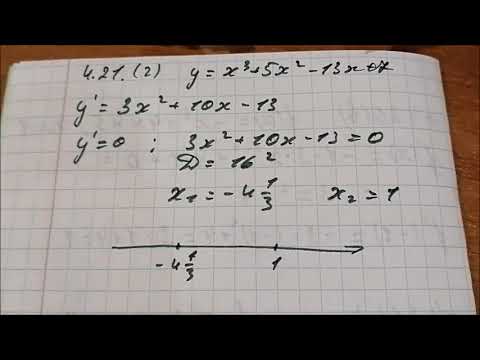 4.21. (2) y = x³+5x²-13x+7
y' = 3x²+10x-13
y'=0 ; 3x²+10x-13=0
D = 16²
x₁ = -4 1/3 x₂ = 1
-4 1/3 1